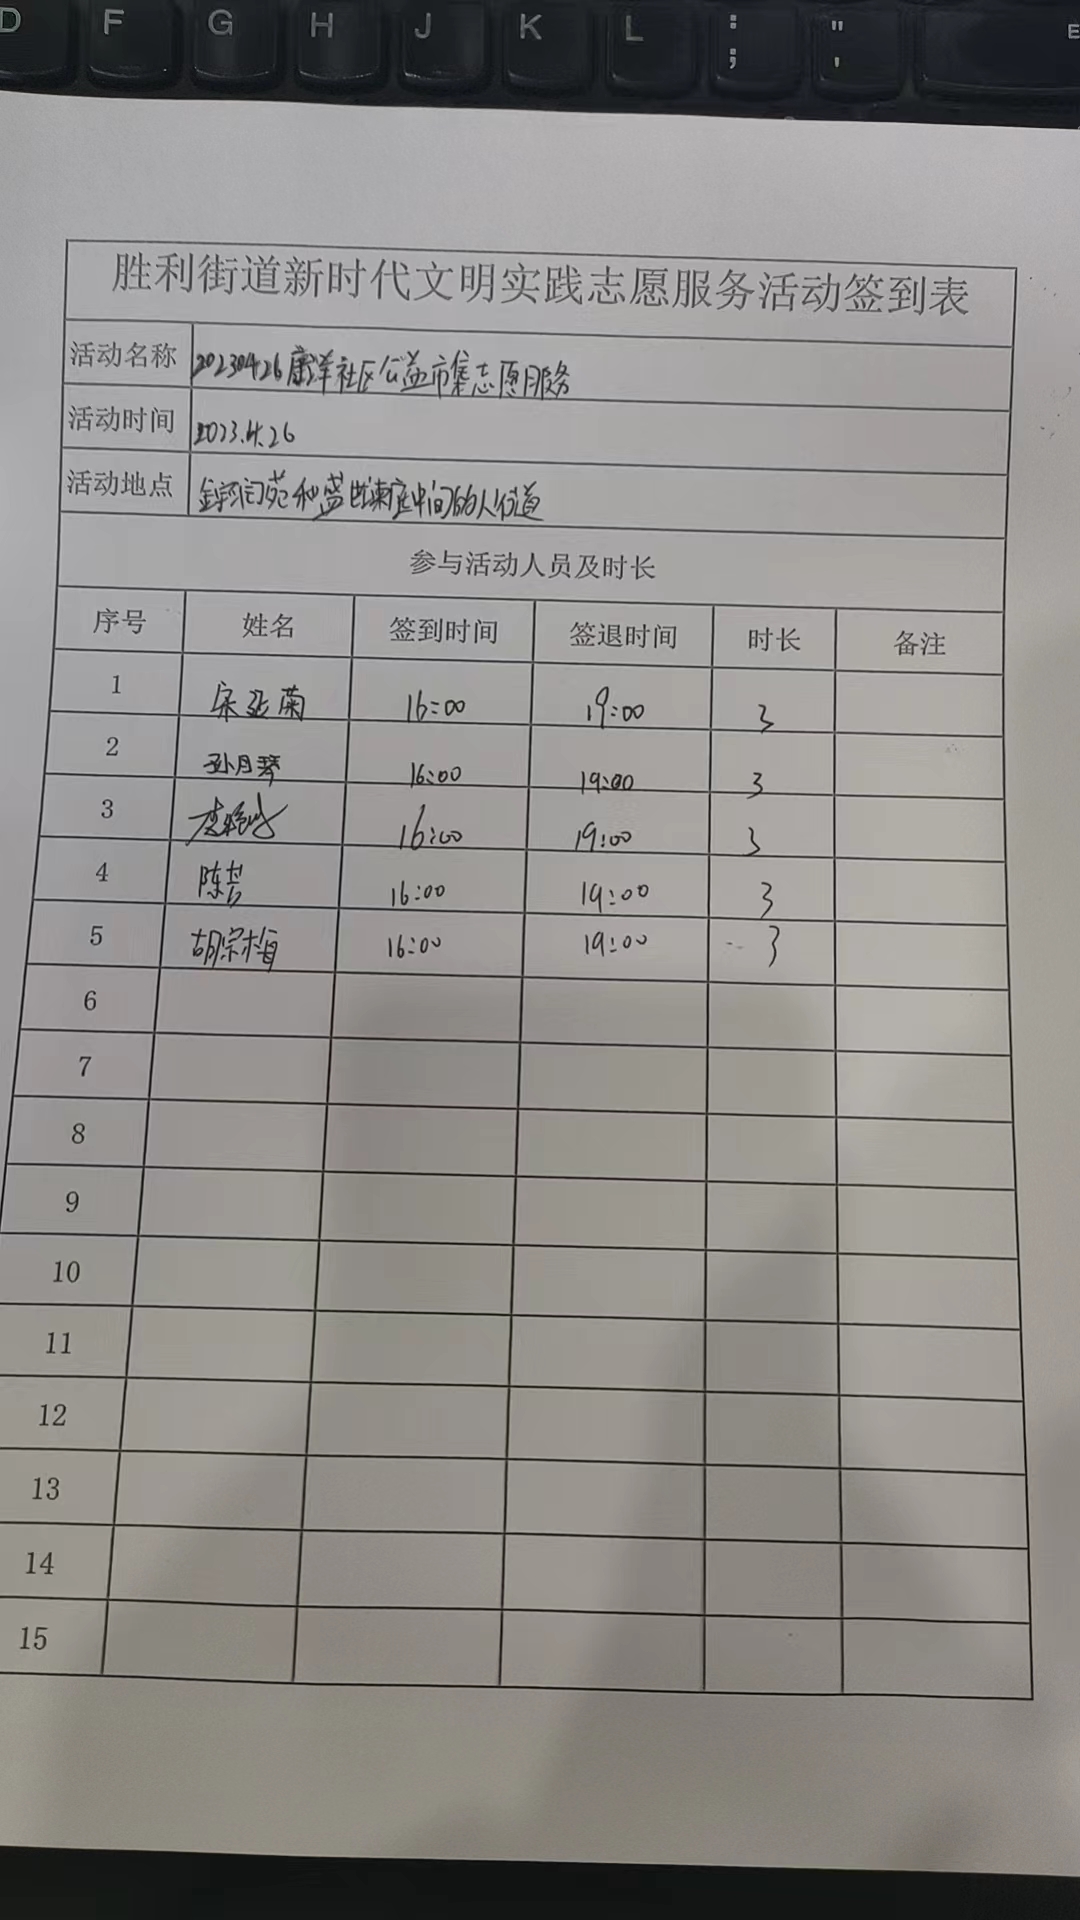 D F G H J K L : ; " ' E
胜利街道新时代文明实践志愿服务活动签到表
活动名称 20230426康洋社区公益市集志愿服务
活动时间 2023.4.26
活动地点 和盛世东庭中间的人行道
参与活动人员及时长
序号 姓名 签到时间 签退时间 时长 备注
1 宋亚菊 16:00 19:00 3
2 孙月琴 16:00 19:00 3
3 16:00 19:00 3
4 陈芸 16:00 19:00 3
5 胡宗梅 16:00 19:00 3
6
7
8
9
10
11
12
13
14
15